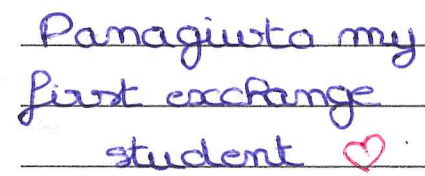 Panagiwta my
first exchange
student ♡